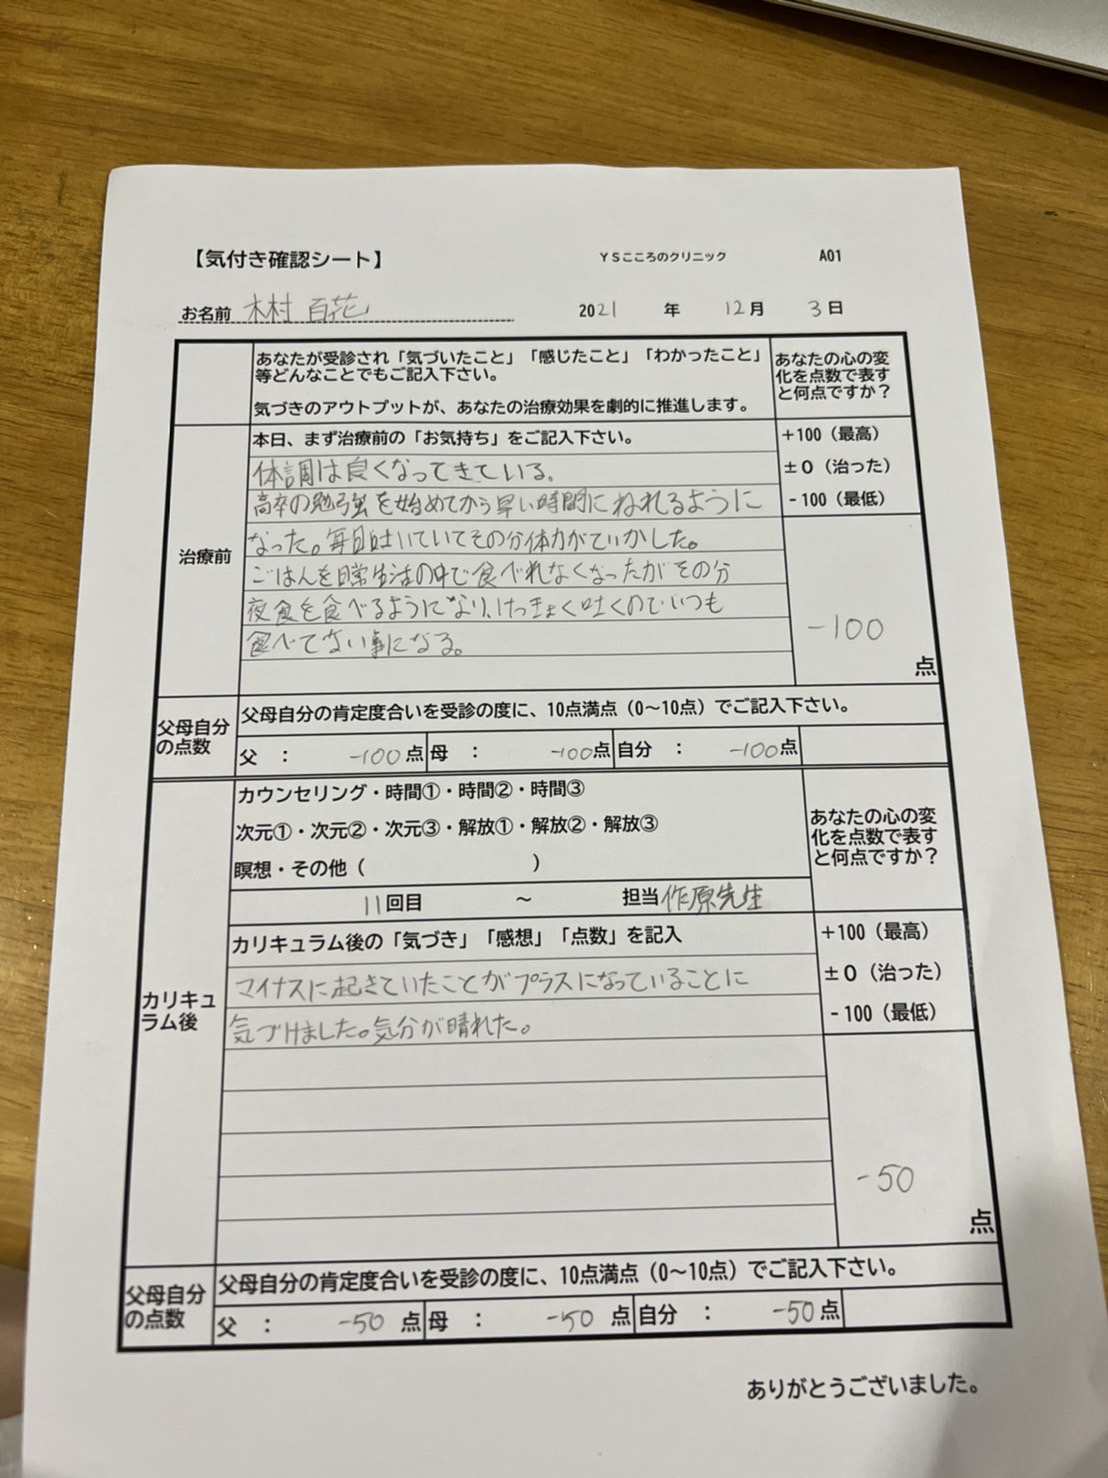 【気付き確認シート】 YSこころのクリニック A01
お名前 木村 百花 2021 年 12月 3日
あなたが受診され「気づいたこと」「感じたこと」「わかったこと」
等どんなことでもご記入下さい。
気づきのアウトプットが、あなたの治療効果を劇的に推進します。
あなたの心の変
化を点数で表す
と何点ですか？
治療前
本日、まず治療前の「お気持ち」をご記入下さい。
体調は良くなってきている。
高卒の勉強を始めてから早い時間にねれるように
なった。毎日吐いていてその分体力がていかした。
ごはんを日常生活の中で食べれなくなったがその分
夜食を食べるようになり、けっきょく吐くのでいつも
食べてない事になる。
+100（最高）
±0（治った）
-100（最低）
-100
点
父母自分
の点数
父母自分の肯定度合いを受診の度に、10点満点（0～10点）でご記入下さい。
父 ： -100点 母 ： -100点 自分 ： -100点
カリキュ
ラム後
カウンセリング・時間①・時間②・時間③
次元①・次元②・次元③・解放①・解放②・解放③
瞑想・その他（ ）
11回目 ～ 担当 作原先生
あなたの心の変
化を点数で表す
と何点ですか？
カリキュラム後の「気づき」「感想」「点数」を記入
マイナスに起きていたことがプラスになっていることに
気づけました。気分が晴れた。
+100（最高）
±0（治った）
-100（最低）
-50
点
父母自分
の点数
父母自分の肯定度合いを受診の度に、10点満点（0～10点）でご記入下さい。
父 ： -50 点 母 ： -50 点 自分 ： -50点
ありがとうございました。